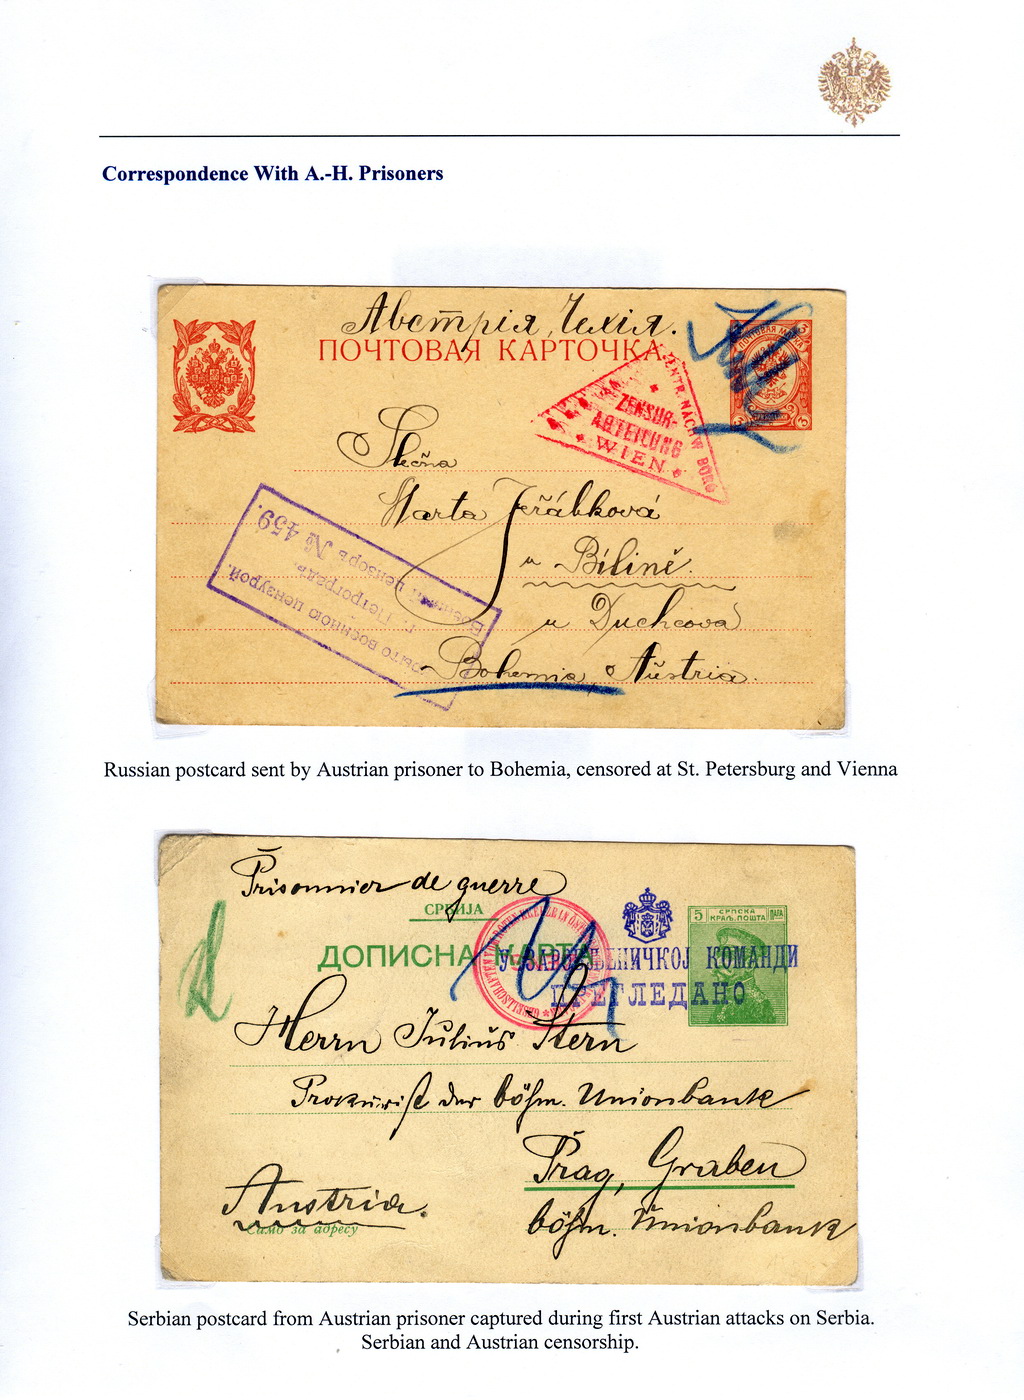 Correspondence With A.-H. Prisoners
Австрія, Чехія.
ПОЧТОВАЯ КАРТОЧКА.
ПОЧТОВАЯ МАРКА
3 3
3 3
ZENTR. NACHW
ZENSUR-
ABTEILUNG
WIEN
Slečna
Marta Jeřábková
u Bílině.
u Duchcova
Bohemia, Austria.
военною цензурой.
г. Петроградъ.
цензоръ № 459.
Russian postcard sent by Austrian prisoner to Bohemia, censored at St. Petersburg and Vienna
Prisonnier de guerre
СРБИЈА
5 СРПСКА ПАРА
КРАЉ. ПОШТА
ДОПИСНА КАРТА
У КОМАНДИ
ПРЕГЛЕДАНО
Herrn Julius Stern
Prokurist der böhm. Unionbank
Prag, Graben
Austria.
böhm. Unionbank
Само за адресу
Serbian postcard from Austrian prisoner captured during first Austrian attacks on Serbia.
Serbian and Austrian censorship.